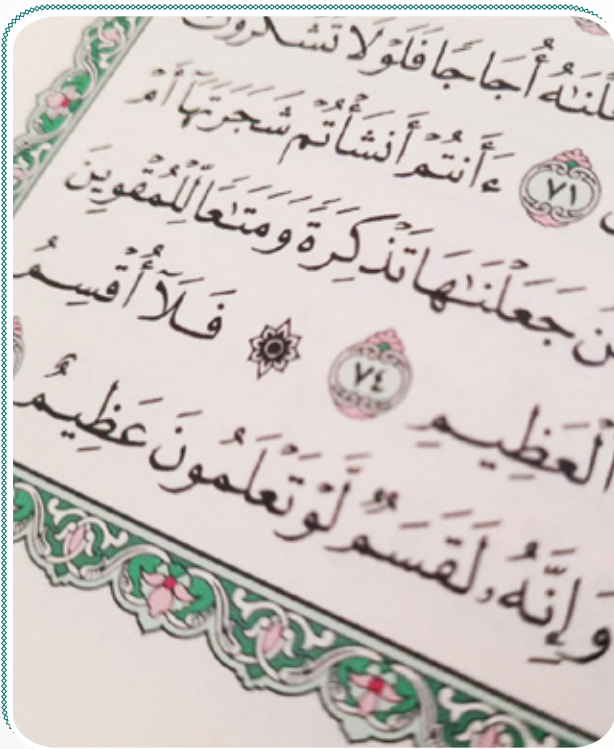 أُجَاجًا فَلَوْلَا تَشْكُرُونَ
٧١ ءَأَنتُمْ أَنشَأْتُمْ شَجَرَتَهَآ أَمْ
جَعَلْنَـٰهَا تَذْكِرَةً وَمَتَـٰعًا لِّلْمُقْوِينَ
الْعَظِيمِ ٧٤ فَلَآ أُقْسِمُ
وَإِنَّهُۥ لَقَسَمٌ لَّوْ تَعْلَمُونَ عَظِيمٌ